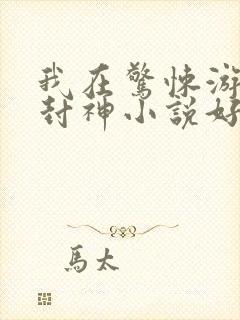 我在驚悚游
封神小說好
馬太